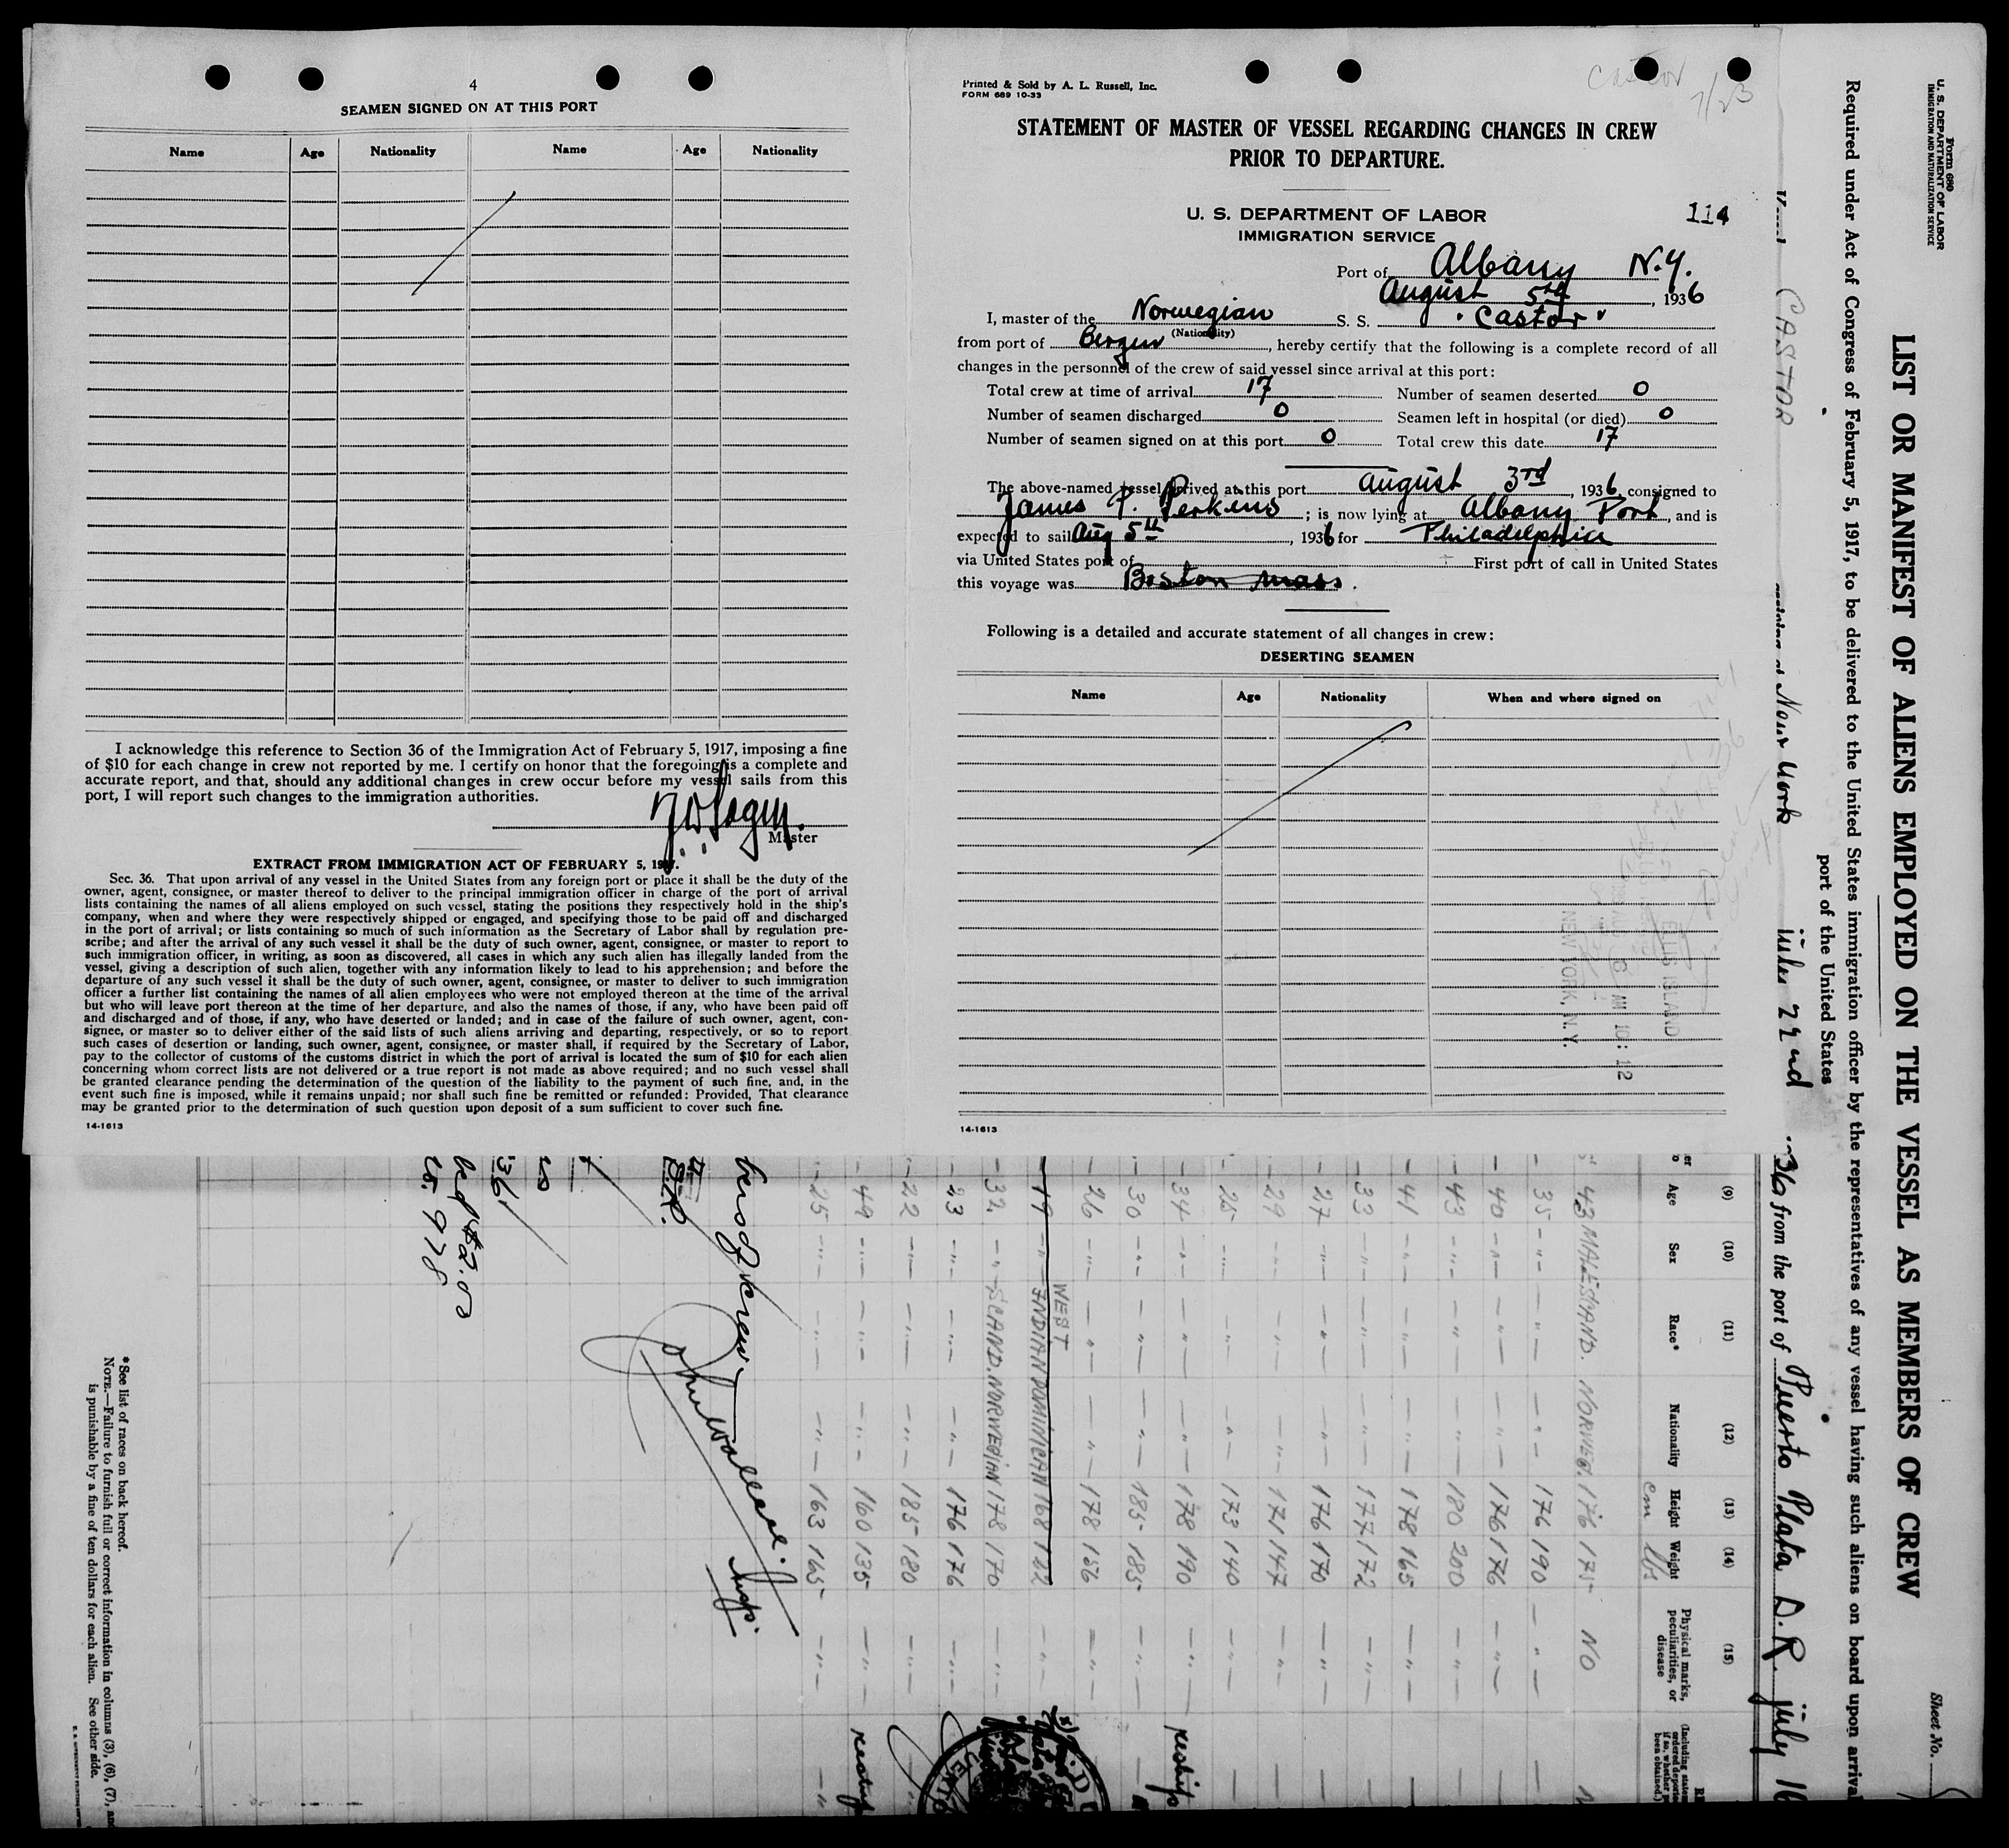 4
SEAMEN SIGNED ON AT THIS PORT
Name Age Nationality Name Age Nationality
I acknowledge this reference to Section 36 of the Immigration Act of February 5, 1917, imposing a fine
of $10 for each change in crew not reported by me. I certify on honor that the foregoing is a complete and
accurate report, and that, should any additional changes in crew occur before my vessel sails from this
port, I will report such changes to the immigration authorities.
Master
EXTRACT FROM IMMIGRATION ACT OF FEBRUARY 5, 1917.
Sec. 36. That upon arrival of any vessel in the United States from any foreign port or place it shall be the duty of the
owner, agent, consignee, or master thereof to deliver to the principal immigration officer in charge of the port of arrival
lists containing the names of all aliens employed on such vessel, stating the positions they respectively hold in the ship's
company, when and where they were respectively shipped or engaged, and specifying those to be paid off and discharged
in the port of arrival; or lists containing so much of such information as the Secretary of Labor shall by regulation pre-
scribe; and after the arrival of any such vessel it shall be the duty of such owner, agent, consignee, or master to report to
such immigration officer, in writing, as soon as discovered, all cases in which any such alien has illegally landed from the
vessel, giving a description of such alien, together with any information likely to lead to his apprehension; and before the
departure of any such vessel it shall be the duty of such owner, agent, consignee, or master to deliver to such immigration
officer a further list containing the names of all alien employees who were not employed thereon at the time of the arrival
but who will leave port thereon at the time of her departure, and also the names of those, if any, who have been paid off
and discharged and of those, if any, who have deserted or landed; and in case of the failure of such owner, agent, con-
signee, or master so to deliver either of the said lists of such aliens arriving and departing, respectively, or so to report
such cases of desertion or landing, such owner, agent, consignee, or master shall, if required by the Secretary of Labor,
pay to the collector of customs of the customs district in which the port of arrival is located the sum of $10 for each alien
concerning whom correct lists are not delivered or a true report is not made as above required; and no such vessel shall
be granted clearance pending the determination of the question of the liability to the payment of such fine, and, in the
event such fine is imposed, while it remains unpaid; nor shall such fine be remitted or refunded: Provided, That clearance
may be granted prior to the determination of such question upon deposit of a sum sufficient to cover such fine.
14-1613
Castor
7/23
Printed & Sold by A. L. Russell, Inc.
FORM 689 10-33
STATEMENT OF MASTER OF VESSEL REGARDING CHANGES IN CREW
PRIOR TO DEPARTURE.
U. S. DEPARTMENT OF LABOR
114
IMMIGRATION SERVICE
Port of Albany N.Y.
August 5th, 1936
I, master of the Norwegian S. S. "Castor"
(Nationality)
from port of Bergen, hereby certify that the following is a complete record of all
changes in the personnel of the crew of said vessel since arrival at this port:
Total crew at time of arrival 17 Number of seamen deserted 0
Number of seamen discharged 0 Seamen left in hospital (or died) 0
Number of seamen signed on at this port 0 Total crew this date 17
The above-named vessel arrived at this port August 3rd, 1936, consigned to
James P. Perkins; is now lying at Albany Port, and is
expected to sail Aug 5th, 1936 for Philadelphia
via United States port of First port of call in United States
this voyage was Boston Mass.
Following is a detailed and accurate statement of all changes in crew:
DESERTING SEAMEN
Name Age Nationality When and where signed on
ELLIS ISLAND
6 AM 10:12
NEW YORK, N.Y.
14-1613
Form 680
U. S. DEPARTMENT OF LABOR
IMMIGRATION AND NATURALIZATION SERVICE
Sheet No.
LIST OR MANIFEST OF ALIENS EMPLOYED ON THE VESSEL AS MEMBERS OF CREW
Required under Act of Congress of February 5, 1917, to be delivered to the United States immigration officer by the representatives of any vessel having such aliens on board upon arrival
port of the United States
CASTOR New York 22nd 36 from the port of Puerto Plata D.R. july 16
(9) (10) (11) (12) (13) (14) (15)
Age Sex Race* Nationality Height Weight Physical marks, peculiarities, or disease
cm lbs
43 MALE SCAND. NORWEG. 176 175 NO
35 " " " 176 190 "
40 " " " 176 176 "
43 " " " 180 200 "
41 " " " 178 165 "
33 " " " 177 172 "
27 " " " 176 170 "
29 " " " 171 147 "
25 " " " 173 140 "
34 " " " 178 190 " reship
30 " " " 185 185 "
26 " " " 178 156 "
19 " WEST INDIAN DOMINICAN 168 122 "
32 " SCAND. NORWEGIAN 178 170 "
23 " " " 176 176 "
22 " " " 185 180 "
49 " " " 160 135 " reship
25 " " " 163 165 "
*See list of races on back hereof.
NOTE.—Failure to furnish full or correct information in columns (3), (6), (7), and
is punishable by a fine of ten dollars for each alien. See other side.